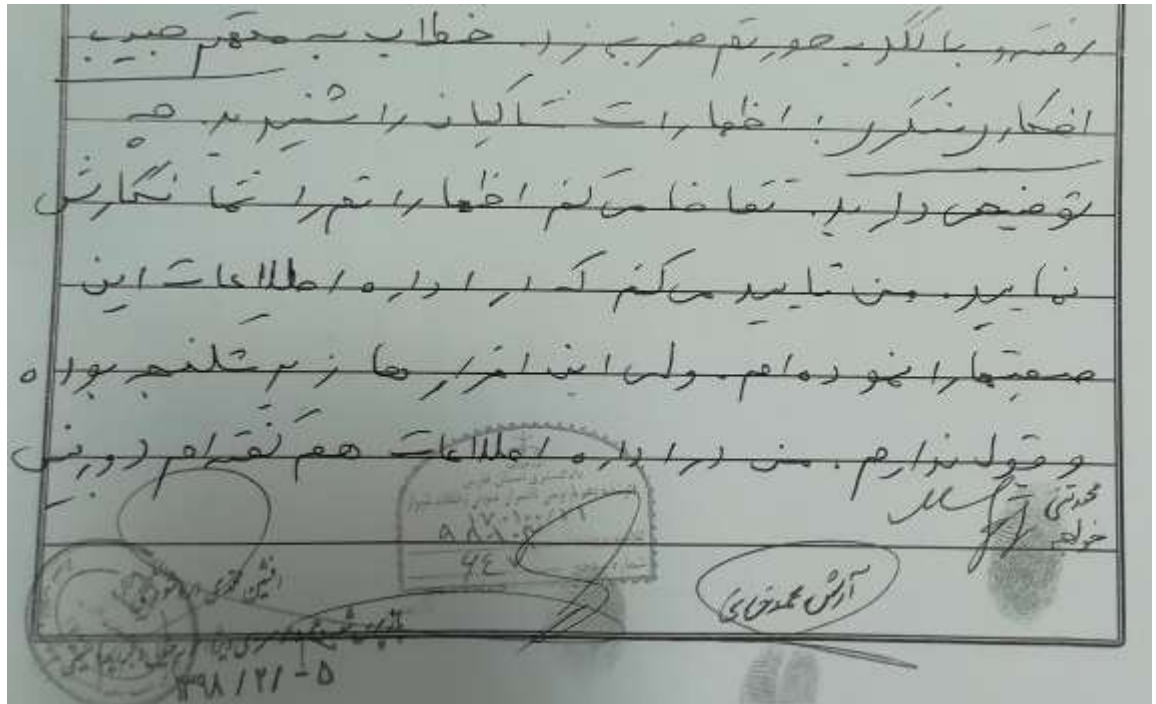 رفته و با لگد به صورتم ضربه زد. خطاب به متهم حبیب
افکاری سنگری : اظهارات شاکیان را شنیدید. چه
توضیحی دارید. تقاضا می‌کنم اظهاراتم را شما نگارش
نمایید. من تایید می‌کنم که در اداره اطلاعات این
صحبتها را نموده‌ام. ولی این اقرارها زیر شکنجه بوده
و قبول ندارم. من در اداره اطلاعات هم گفته‌ام دوربین
محمدتقی
آرش محمدخانی
۱۳۹۸/۲/-۵